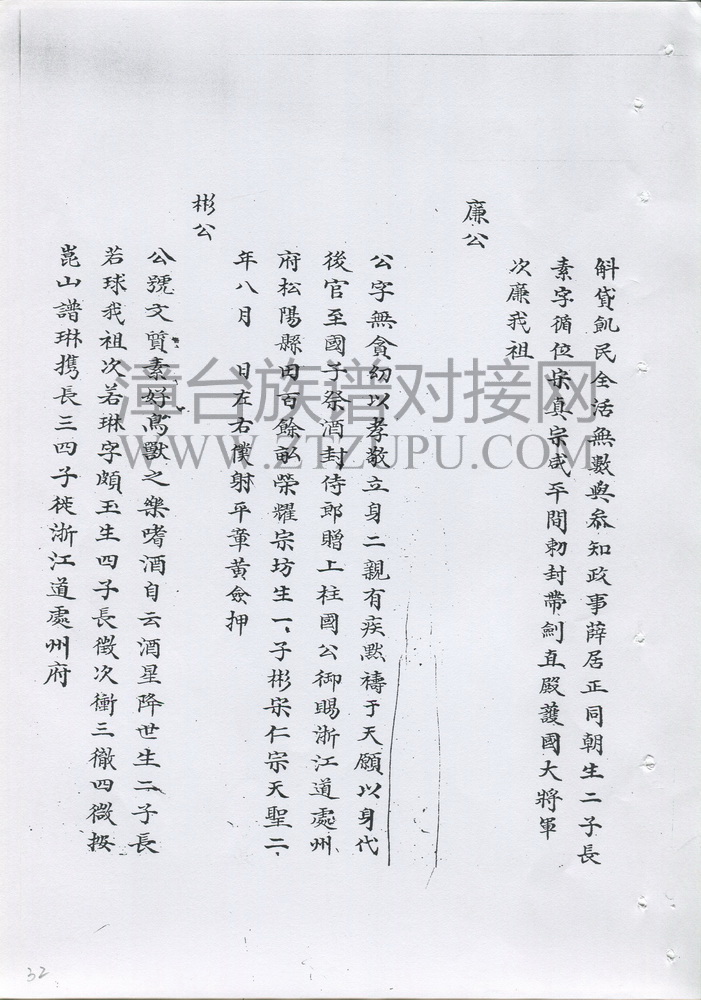 斛貸飢民全活無數與叅知政事薛居正同朝生二子長
素字循位宋真宗咸平間勅封帶劍直殿護國大將軍
次廉我祖
廉公
公字無貪幼以孝敬立身二親有疾默禱于天願以身代
後官至國子祭酒封侍郎贈上柱國公御賜浙江道處州
府松陽縣田百餘畝榮耀宗坊生一子彬宋仁宗天聖二
年八月 日左右僕射平章黃僉押
彬公
公號文質素好鳥獸之樂嗜酒自云酒星降世生二子長
若球我祖次若琳字頗玉生四子長徵次衝三徹四微按
崑山譜琳携長三四子徙浙江道處州府
漳台族谱对接网
WWW.ZTZUPU.COM
32